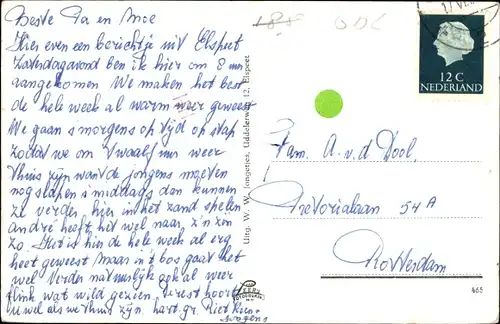 Beste Pa en Moe
Hier even een berichtje uit Elspeet
Zaterdagavond ben ik hier om 8 uur
aangekomen We maken het best
de hele week al warm weer geweest
We gaan s morgens op tijd op stap
zodat we om twaalf uur weer
thuis zijn want de jongens moeten
nog slapen s middags dan kunnen
ze verder hier in het zand spelen
andré heeft het wel naar z'n zin
zo. Het is hier de hele week al erg
heet geweest maar in 't bos gaat het
wel Verder natuurlijk ook al weer
flink wat wild gezien. Verest hoort
u wel als we thuis zijn. hart. gr. Riet Kun-
Uitg. W. W. Jongetjes, Uddelerweg 12, Elspeet
188
12 C
NEDERLAND
Fam. A. v. d. Dool,
Pretorialaan 54 A
Rotterdam
465